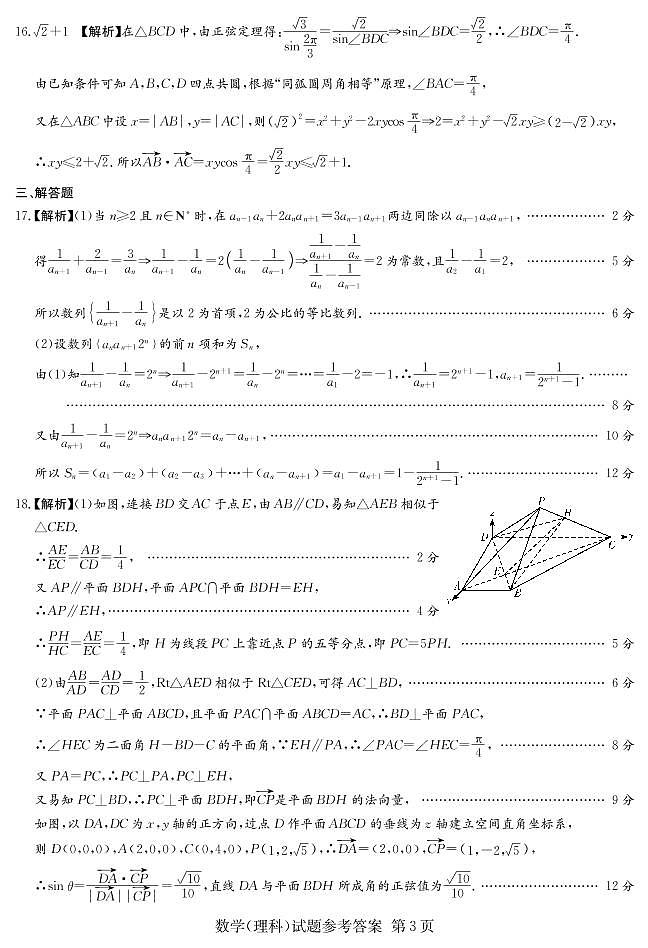 16.√2+1 【解析】在△BCD中,由正弦定理得:√3/sin(2π/3)=√2/sin∠BDC⇒sin∠BDC=√2/2,∴∠BDC=π/4.
由已知条件可知A,B,C,D四点共圆,根据“同弧圆周角相等”原理,∠BAC=π/4,
又在△ABC中设x=|AB|,y=|AC|,则(√2)²=x²+y²-2xycos π/4⇒2=x²+y²-√2xy≥(2-√2)xy,
∴xy≤2+√2.所以AB→·AC→=xycos π/4=(√2/2)xy≤√2+1.
三、解答题
17.【解析】(1)当n≥2且n∈N*时,在aₙ₋₁aₙ+2aₙaₙ₊₁=3aₙ₋₁aₙ₊₁两边同除以aₙ₋₁aₙaₙ₊₁, ……………… 2分
得1/aₙ₊₁+2/aₙ₋₁=3/aₙ⇒1/aₙ₊₁-1/aₙ=2(1/aₙ-1/aₙ₋₁)⇒(1/aₙ₊₁-1/aₙ)/(1/aₙ-1/aₙ₋₁)=2为常数,且1/a₂-1/a₁=2, ……………… 5分
所以数列{1/aₙ₊₁-1/aₙ}是以2为首项,2为公比的等比数列. ……………………………………………… 6分
(2)设数列{aₙaₙ₊₁2ⁿ}的前n项和为Sₙ,
由(1)知1/aₙ₊₁-1/aₙ=2ⁿ⇒1/aₙ₊₁-2ⁿ⁺¹=1/aₙ-2ⁿ=…=1/a₁-2=-1,∴1/aₙ₊₁=2ⁿ⁺¹-1,aₙ₊₁=1/(2ⁿ⁺¹-1). ………
…………………………………………………………………………………………………… 8分
又由1/aₙ₊₁-1/aₙ=2ⁿ⇒aₙaₙ₊₁2ⁿ=aₙ-aₙ₊₁, ……………………………………………………………… 10分
所以Sₙ=(a₁-a₂)+(a₂-a₃)+…+(aₙ-aₙ₊₁)=a₁-aₙ₊₁=1-1/(2ⁿ⁺¹-1). ……………………… 12分
18.【解析】(1)如图,连接BD交AC于点E,由AB∥CD,易知△AEB相似于
△CED.
∴AE/EC=AB/CD=1/4, ……………………………………………… 2分
又AP∥平面BDH,平面APC∩平面BDH=EH,
∴AP∥EH, ……………………………………………………… 4分
∴PH/HC=AE/EC=1/4,即H为线段PC上靠近点P的五等分点,即PC=5PH. ………………………… 5分
(2)由AB/AD=AD/CD=1/2,Rt△AED相似于Rt△CED,可得AC⊥BD, …………………………………… 6分
∵平面PAC⊥平面ABCD,且平面PAC∩平面ABCD=AC,∴BD⊥平面PAC,
∴∠HEC为二面角H-BD-C的平面角,∵EH∥PA,∴∠PAC=∠HEC=π/4, …………………… 8分
又PA=PC,∴PC⊥PA,PC⊥EH,
又易知PC⊥BD,∴PC⊥平面BDH,即CP→是平面BDH的法向量, ………………………………… 9分
如图,以DA,DC为x,y轴的正方向,过点D作平面ABCD的垂线为z轴建立空间直角坐标系,
则D(0,0,0),A(2,0,0),C(0,4,0),P(1,2,√5),∴DA→=(2,0,0),CP→=(1,-2,√5),
∴sin θ=DA→·CP→/(|DA→||CP→|)=√10/10,直线DA与平面BDH所成角的正弦值为√10/10. ……………………… 12分
z
P
H
D
C
y
E
A
B
数学(理科)试题参考答案 第3页